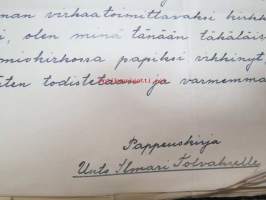 man virkaatoimittavaksi kirkko
i, olen minä tänään täkäläis
omiokirkossa papiksi vihkinyt
iten todistetaan ja varmemma
Pappeuskirja
Unto Ilmari Tolvahselle